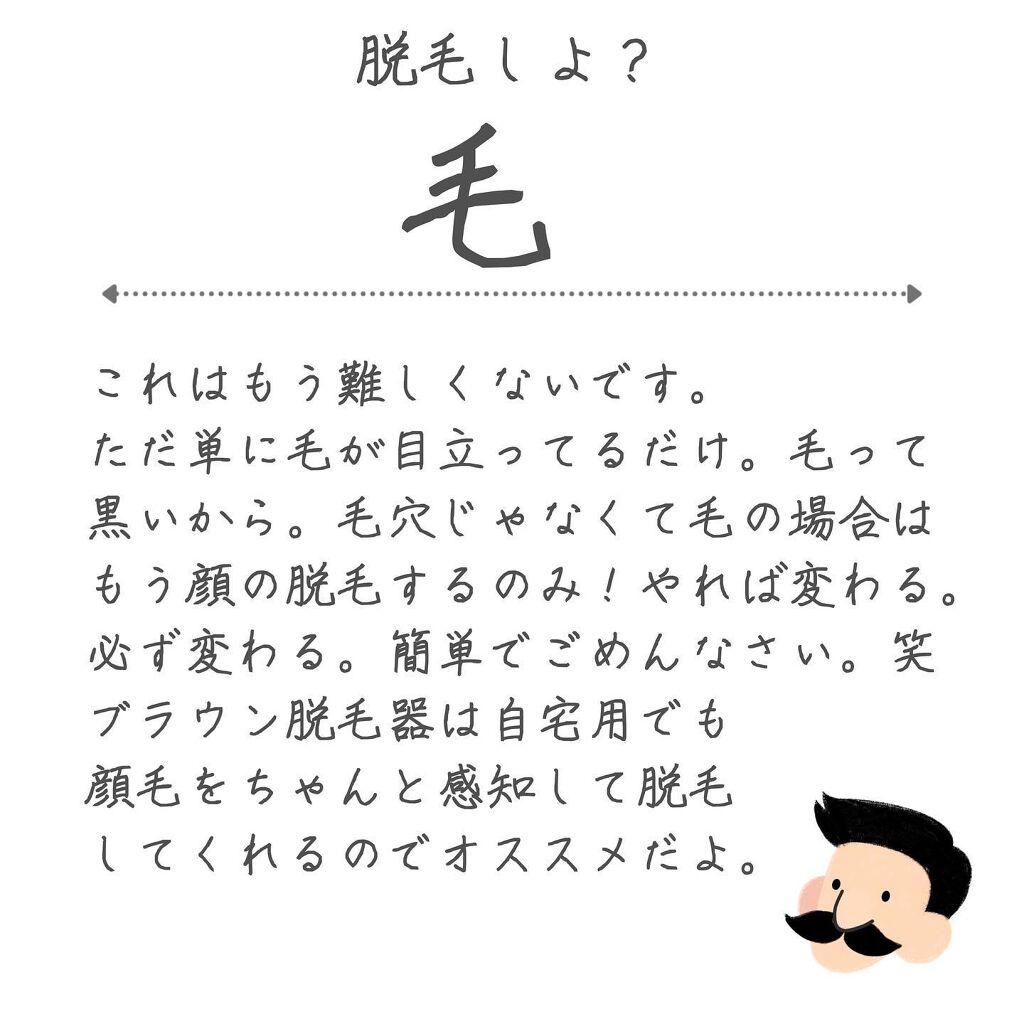 脱毛しよ？
毛
これはもう難しくないです。
ただ単に毛が目立ってるだけ。毛って
黒いから。毛穴じゃなくて毛の場合は
もう顔の脱毛するのみ！やれば変わる。
必ず変わる。簡単でごめんなさい。笑
ブラウン脱毛器は自宅用でも
顔毛をちゃんと感知して脱毛
してくれるのでオススメだよ。